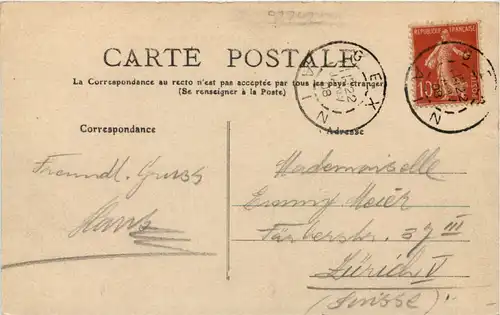 CARTE POSTALE
La Correspondance au recto n'est pas acceptée par tous les pays étrangers
(Se renseigner à la Poste)
Correspondance
Adresse
RÉPUBLIQUE FRANÇAISE
10
GEX
AIN
GEX
AIN
Freundl. Gruss
Hans
Mademoiselle
Emmy Meier
Färberstr. 27 III
Zürich V
(Suisse).